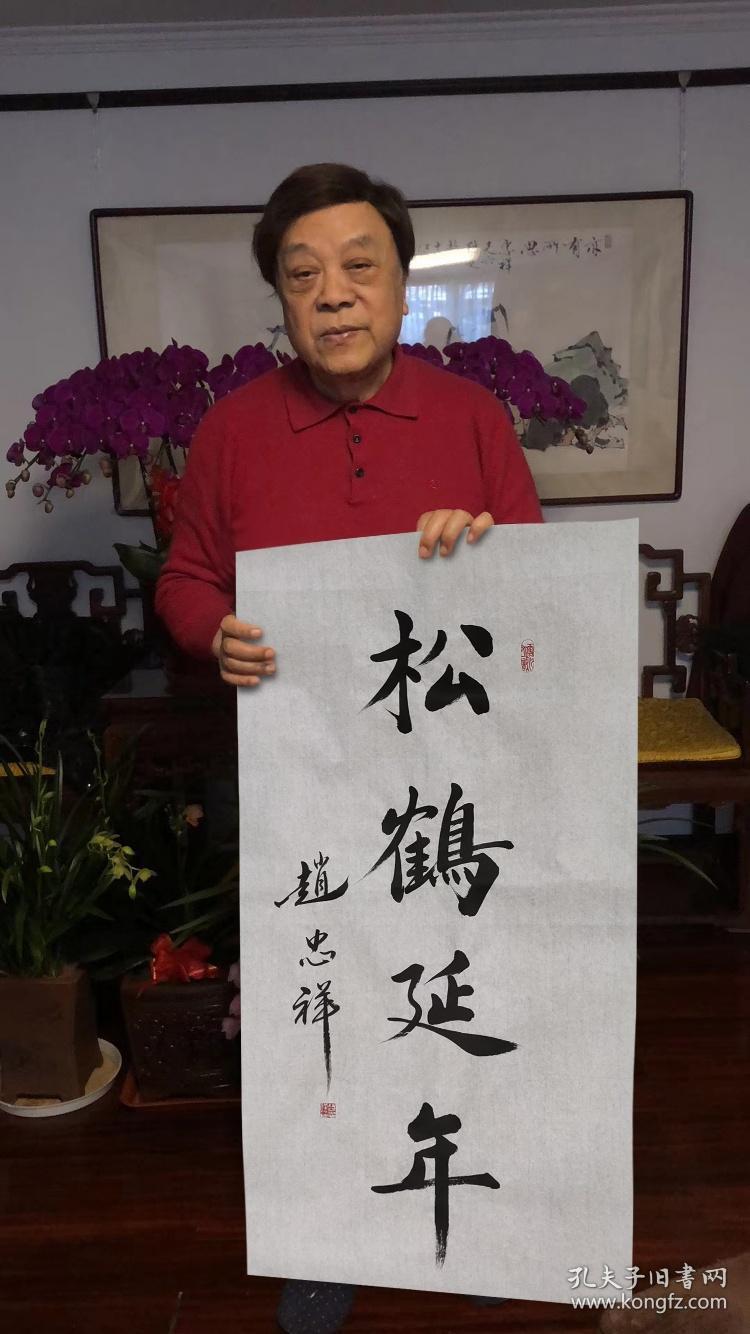 松鶴延年
趙忠祥
孔夫子旧書网
www.kongfz.com